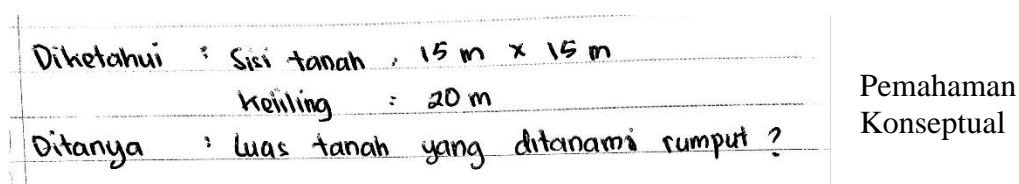 Diketahui : Sisi tanah : 15 m x 15 m
Keliling : 20 m
Ditanya : Luas tanah yang ditanami rumput ?
Pemahaman
Konseptual